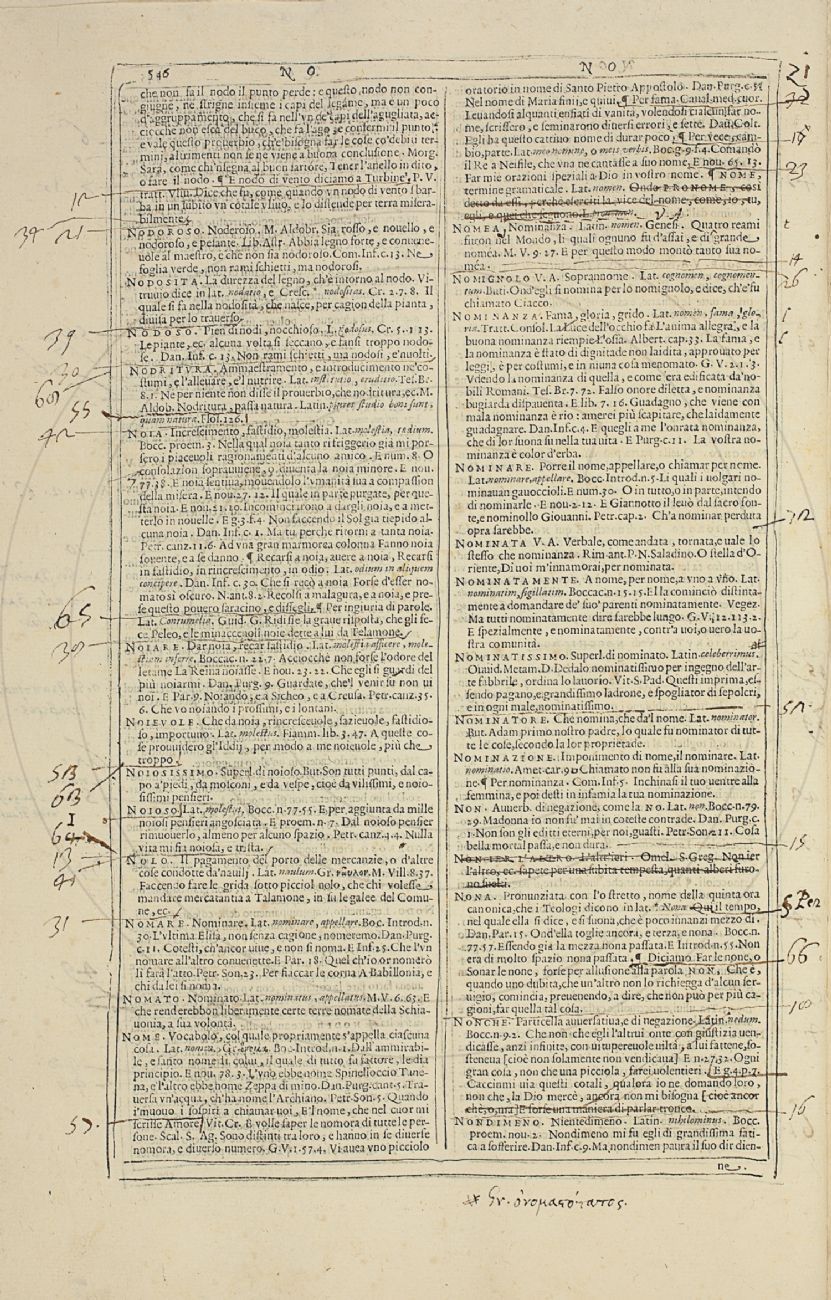 546 N O. N O
che non fa il nodo il punto perde: e questo, nodo non con-
giugne, ne strigne insieme i capi del legame, ma e un poco
d'aggruppamento, che si fa nell'vn de' capi dell'agugliata, ac-
cioche non esca del buco, che fa l'ago, e confermi il punto,
e vale questo prouerbio, che bisogna far le cose co' debiti ter-
mini, altrimenti non se ne viene a buona conclusione. Morg.
come chi'nsegna al buon sartore, Tener l'anello in dito,
o fare il nodo. ¶ E nodo di vento diciamo a Turbine, P. V.
Dice che fu, come quando vn nodo di vento
ba in un subito vn cotale vluo, e lo distende per terra misera-
bilmente.
NODOROSO. Noderoso. M. Aldobr. Sia rosso, e nouello, e
nodoroso, e pesante. Lib. Astr. Abbia legno forte, e conuene-
uole al maestro, e che non sia nodoroso. Com. Inf. c. 13. Ne
foglia verde, non rami schietti, ma nodorosi.
NODOSITA. La durezza del legno, ch'è intorno al nodo. Vi-
truuio dice in lat. nodatio, e Cresc. nodositas. Cr. 2. 7. 8. Il
quale si fa nella nodosità, che nasce, per cagion della pianta,
diuisa per lo trauerso.
NODOSO. Pien di nodi, nocchioso. L. nodosus. Cr. 5. 1 13.
Le piante, ec. alcuna volta si seccano, e fansi troppo nodo-
se. Dan. Inf. c. 13. Non rami schietti, ma nodosi, e'nuolti.
NODRITURA. Ammaestramento, e introducimento ne' co-
stumi, e l'alleuare, e'l nutrire. Lat. institutio, eruditio. Tes. Br.
8. 1. Ne per niente non disse il prouerbio, che nodritura, ec. M.
Aldob. Nodritura, passa natura. Latin.
NOIA. Increscimento, fastidio, molestia. Lat. molestia, tedium.
Bocc. proem. 3. Nella qual noia tanto rifriggerio già mi por-
sero i piaceuoli ragionamenti d'alcuno amico. E num. 8. O
consolazion soprauuiene, o diuenta la noia minore. E nou.
77. 38. E noia sentiua, mouendolo l'vmanità sua a compassion
della misera. E nou. 27. 12. Il quale in parte purgate, per que-
sta noia. E nou. 21. 10. Incominciarono a dargli noia, e a met-
terlo in nouelle. E g. 3. f. 4. Non faccendo il Sol gia tiepido al-
cuna noia. Dan. Inf. c. 1. Ma tu perche ritorni a tanta noia.
Petr. canz. 11. 6. Ad vna gran marmorea colonna Fanno noia
souente, e a se danno. ¶ Recarsi a noia, auere a noia, Recarsi
in fastidio, in rincrescimento, in odio. Lat. odium in aliquem
concipere. Dan. Inf. c. 30. Che si recò a noia Forse d'esser no-
mato si oscuro. N. ant. 8. 2. Recossi a malagura, e a noia, e pre-
se questo pouero saracino, e dissegli. ¶ Per ingiuria di parole.
Lat. Contumelia. Guid. G. Ridissе la graue risposta, che gli fe-
ce Peleo, e le minacceuoli noie dette a lui da Telamone.
NOIARE. Dar noia, recar fastidio. Lat. molestia afficere, mole-
stiam inferre. Boccac. n. 22. 7. Acciocchè non forse l'odore del
letame La Reina noiasse. E nou. 23. 22. Che egli si guardi del
più noiarmi. Dan. Purg. 9. Guardate, che'l venir su non ui
noi. E Par. 9. Noiando, e a Sicheo, e a Creusa. Petr. canz. 35.
6. Che vo noiando i prossimi, e i lontani.
NOIEVOLE. Che da noia, rincresceuole, fazieuole, fastidio-
so, importuno. Lat. molestus. Fiamm. lib. 3. 47. A queste co-
se prouuidero gl'Iddij, per modo a me noieuole, più che
troppo.
NOIOSISSIMO. Superl. di noioso. But. Son tutti punti, dal ca-
po a'piedi, da mosconi, e da vespe, cioè da vilissimi, e noio-
sissimi pensieri.
NOIOSO. Lat. molestus. Bocc. n. 77. 55. E per aggiunta da mille
noiosi pensieri angosciata. E proem. n. 7. Dal noioso pensier
rimuouerlo, almeno per alcuno spazio. Petr. canz. 4. 4. Nulla
vita mi fia noiosa, e trista.
NOLO. Il pagamento del porto delle mercanzie, o d'altre
cose condotte da'nauilj. Lat. naulum. Gr. ναῦλον. M. Vill. 8. 37.
Faccendo fare le grida sotto piccol nolo, che chi volesse
mandare mercatantia a Talamone, in su le galee del Comu-
ne, ec.
NOMARE. Nominare. Lat. nominare, appellare. Boc. Introd. n.
30. L'vltima. Elisa, non senza cagione, nomeremo. Dan. Purg.
c. 11. Cotesti, ch'ancor uiue, e non si noma. E Inf. 25. Che l'vn
nomare all'altro conuenette. E Par. 18. Quel ch'io or nomerò
lì farà l'atto. Petr. Son. 23. Per fiaccar le corna A Babillonia, e
chi da lei si noma.
NOMATO. Nominato. Lat. nominatus, appellatus. M. V. 6. 63. E
che renderebbon liberamente certe terre nomate della Schia-
uonia, a sua volontà.
NOME. Vocabolo, col quale propriamente s'appella ciascuna
cosa. Lat. nomen. Boc. Introd. n. 1. Dall'ammirabi-
le, e santo nome di colui, il quale di tutto fu fattore, le dia
principio. E nou. 78. 3. L'vno ebbe nome Spinelloccio Tane-
na, e l'altro ebbe nome Zeppa di mino. Dan. Purg. cant. 5. Tra-
uersa vn'acqua, ch'ha nome l'Archiano. Petr. Son. 5. Quando
i'muouo i sospiri a chiamar uoi, E'l nome, che nel cuor mi
scrisse Amore. Vit. Cr. E volle saper le nomora di tutte le per-
sone. Scal. S. Ag. Sono distinti tra loro, e hanno in se diuerse
nomora, e diuerso numero. G. V. 1. 57. 4. Vi auea vno picciolo
oratorio in nome di Santo Pietro Appostolo. Dan. Purg. c. 5.
Nel nome di Maria fini, e quiui. ¶ Per fama. Caual. med. cuor.
Leuandosi alquanti enfiati di vanità, volendosi ciascun far no-
me, scrissero, e seminarono diuersi errori, e sette. Dau. Colt.
Egli ha questo cattiuo nome di durar poco. ¶ Per vece, cam-
bio, parte. Lat. meo nomine, o meis verbis. Boc. g. 9. f. 4. Comandò
il Re a Neifile, che vna ne cantasse a suo nome. E nou. 65. 13.
Far mie orazioni speziali a Dio in vostro nome. ¶ NOME,
termine gramaticale. Lat. nomen. Onde PRONOME, così
detto da essi, perche eserciti la vice del nome, come, io, tu,
NOMEA. Nominanza. Latin. nomen. Genesi. Quatro reami
furon nel Mondo, li quali ognuno fu d'assai, e di grande
nomea. M. V. 9. 27. E per questo modo montò tanto sua no-
mea.
NOMIGNOLO V. A. Soprannome. Lat. cognomen, cognomen-
tum. But. Ond'egli si nomina per lo nomignolo, e dice, ch'e' fu
chiamato Ciacco.
NOMINANZA. Fama, gloria, grido. Lat. nomen, fama, glo-
ria. Tratt. Consol. La luce dell'occhio fa L'anima allegra, e la
buona nominanza riempie l'ossa. Albert. cap. 33. La fama, e
la nominanza è stato di dignitade non laidita, approuato per
leggi, e per costumi, e in niuna cosa menomato. G. V. 2. 1. 3.
Vdendo la nominanza di quella, e come era edificata da'no-
bili Romani. Tes. Br. 7. 72. Falso onore diletta, e nominanza
bugiarda dispauenta. E lib. 7. 16. Guadagno, che viene con
mala nominanza è rio: amerei più scapitare, che laidamente
guadagnare. Dan. Inf. c. 4. E quegli a me l'onrata nominanza,
che di lor suona su nella tua uita. E Purg. c. 11. La vostra no-
minanza è color d'erba.
NOMINARE. Porre il nome, appellare, o chiamar per nome.
Lat. nominare, appellare. Bocc. Introd. n. 5. Li quali i uolgari no-
minauan gauoccioli. E num. 30. O in tutto, o in parte, intendo
di nominarle. E nou. 2. 12. E Giannotto il leuò dal sacro fon-
te, e nominollo Giouanni. Petr. cap. 2. Ch'a nominar perduta
opra sarebbe.
NOMINATA V. A. Verbale, come andata, tornata, e uale lo
stesso che nominanza. Rim. ant. P. N. Saladino. O stella d'O-
riente, Di uoi m'innamorai, per nominata.
NOMINATAMENTE. A nome, per nome, a vno a vno. Lat.
nominatim, sigillatim. Boccac. n. 15. 15. Ella cominciò distinta-
mente a domandare de' suo' parenti nominatamente. Vegez.
Ma tutti nominatamente dire sarebbe lungo. G. V. 12. 113. 2.
E spezialmente, e nominatamente, contr'a uoi, o uero la uo-
stra comunità.
NOMINATISSIMO. Superl. di nominato. Latin. celeberrimus.
Ouuid. Metam. D. Dedalo nominatissimo per ingegno dell'ar-
te fabbrile, ordina lo lauorio. Vit. S. Pad. Questi imprima, es-
sendo pagano, e grandissimo ladrone, e spogliator di sepolcri,
e in ogni male, nominatissimo.
NOMINATORE. Che nomina, che da'l nome. Lat. nominator.
But. Adam primo nostro padre, lo quale fu nominator di tut-
te le cose, secondo la lor proprietade.
NOMINAZIONE. Imponimento di nome, il nominare. Lat.
nominatio. Amet. car. 90 Chiamato non fu alla sua nominazio-
ne. ¶ Per nominanza. Com. Inf. 5. Inchinasi il tuo uentre alla
femmina, e poi desti in infamia la tua nominazione.
NON. Auuerb. di negazione, come la NO. Lat. non. Bocc. n. 79.
29. Madonna io non fu' mai in coteste contrade. Dan. Purg. c.
1. Non son gli editti eterni, per noi, guasti. Petr. Son. 211. Cosa
bella mortal passa, e non dura.
NONIER. L'ALTRO d'altr'ieri. Omel. S. Greg. Non ier
l'altro, ec. sapete per una subita tempesta, quanti alberi furo-
no suelti.
NONA. Pronunziata con l'O stretto, nome della quinta ora
canonica, che i Teologi dicono in lat. Nona. Qui il tempo,
nel quale ella si dice, e si suona, che è poco innanzi mezzo dì.
Dan. Par. 15. Ond'ella toglie ancora, e terza, e nona. Bocc. n.
77. 57. Essendo già la mezza nona passata. E Introd. n. 55. Non
era di molto spazio nona passata. ¶ Diciamo. Far le none, o
Sonar le none, forse per allusione alla parola NON, Che è,
quando uno dubita, che un'altro non lo richiegga d'alcun ser-
uigio, comincia, preuenendo, a dire, che non può per più ca-
gioni, far quella tal cosa.
NONCHE. Particella auuersatiua, e di negazione. Latin. nedum.
Bocc. n. 92. Che non che egli l'altrui onte con giustizia uen-
dicasse, anzi infinite, con uitupereuole uiltà, a lui fattene, so-
steneua [cioè non solamente non vendicaua] E n. 27. 32. Ogni
gran cosa, non che una picciola, farei uolentieri. E g. 4. p. 7.
Caccinmi uia questi cotali, qualora io ne domando loro,
non che, la Dio mercè, ancora non mi bisogna [cioè ancor
chè, o, ma] E forse una maniera di parlar tronco.
NONDIMENO. Nientedimeno. Latin. nihilominus. Bocc.
proem. nou. 2. Nondimeno mi fu egli di grandissima fati-
ca a sofferire. Dan. Inf. c. 9. Ma nondimen paura il suo dir dien-
ne.
12
39
30
55
42
65
30
513
63
I
64
13
31
53
21
23
14
26
312
51
15
66
100
16